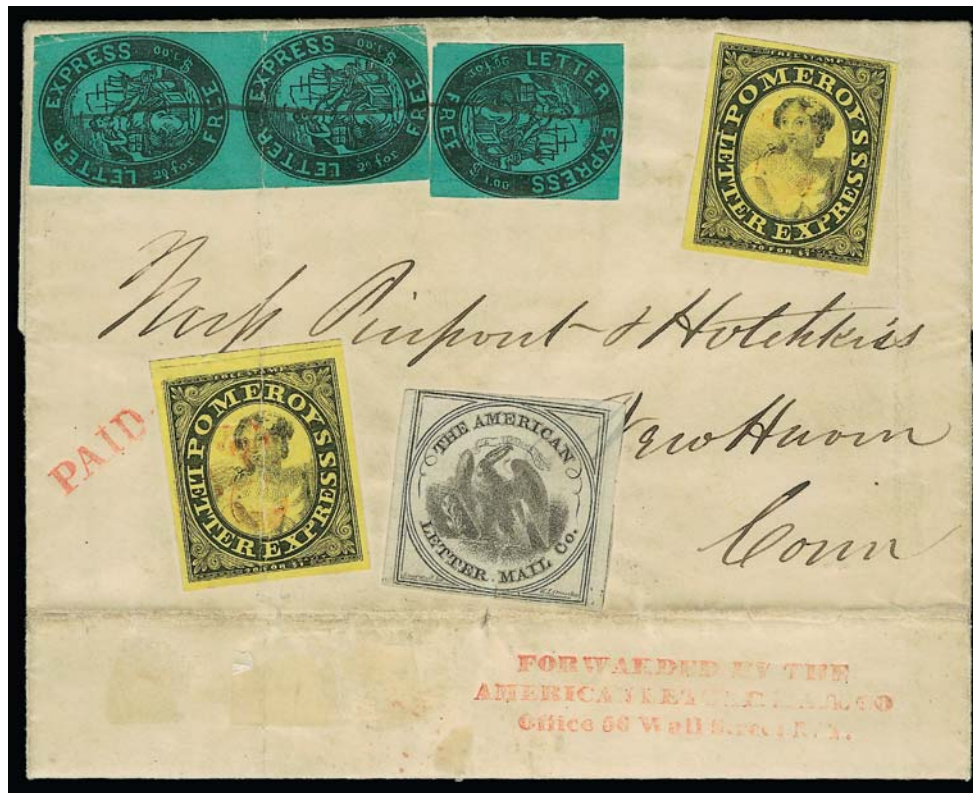 LETTER EXPRESS FREE 20 for $1.00
LETTER EXPRESS FREE 20 for $1.00
LETTER EXPRESS FREE 20 for $1.00
FREE STAMP
POMEROY'S LETTER EXPRESS
20 FOR $1
Mess Pierpont & Hotchkiss
New Haven
Conn
FREE STAMP
POMEROY'S LETTER EXPRESS
20 FOR $1
PAID
THE AMERICAN
LETTER MAIL Co.
FORWARDED BY THE
AMERICAN LETTER MAIL CO
Office 56 Wall Street N. Y.